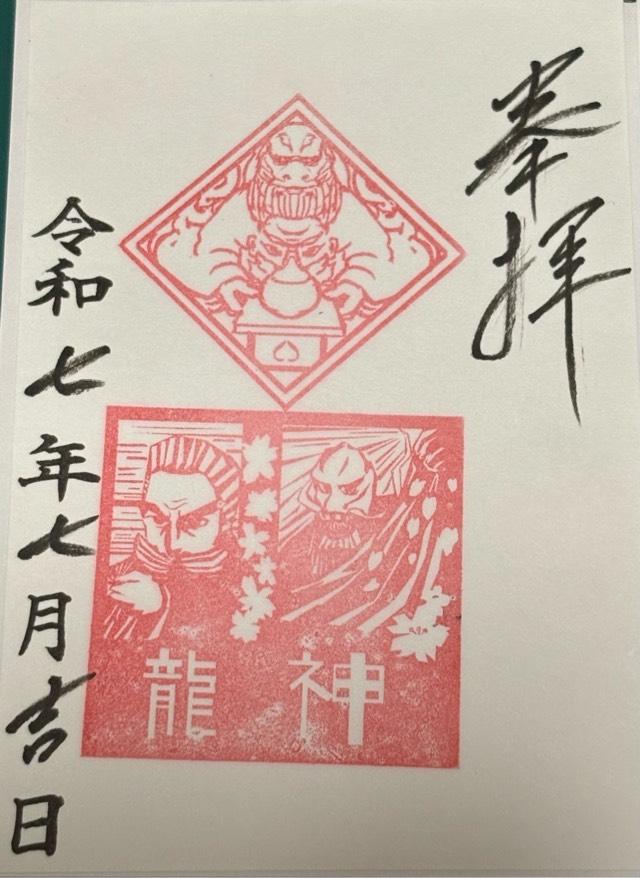 奉拝
神龍
令和七年七月吉日